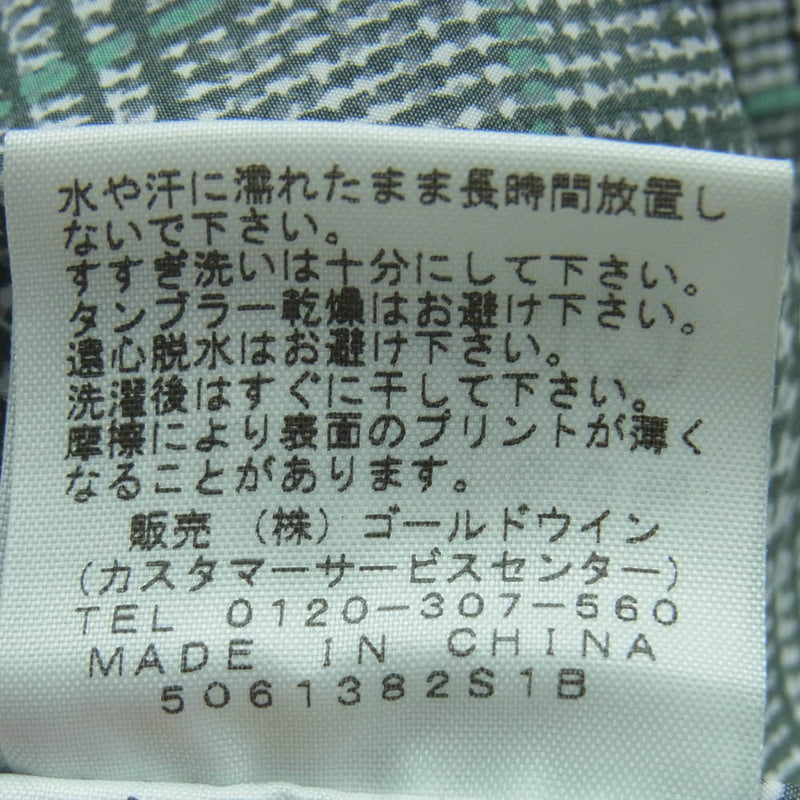 水や汗に濡れたまま長時間放置し
ないで下さい。
すすぎ洗いは十分にして下さい。
タンブラー乾燥はお避け下さい。
遠心脱水はお避け下さい。
洗濯後はすぐに干して下さい。
摩擦により表面のプリントが薄く
なることがあります。
販売 (株)ゴールドウイン
(カスタマーサービスセンター)
TEL 0120-307-560
MADE IN CHINA
5061382S1B